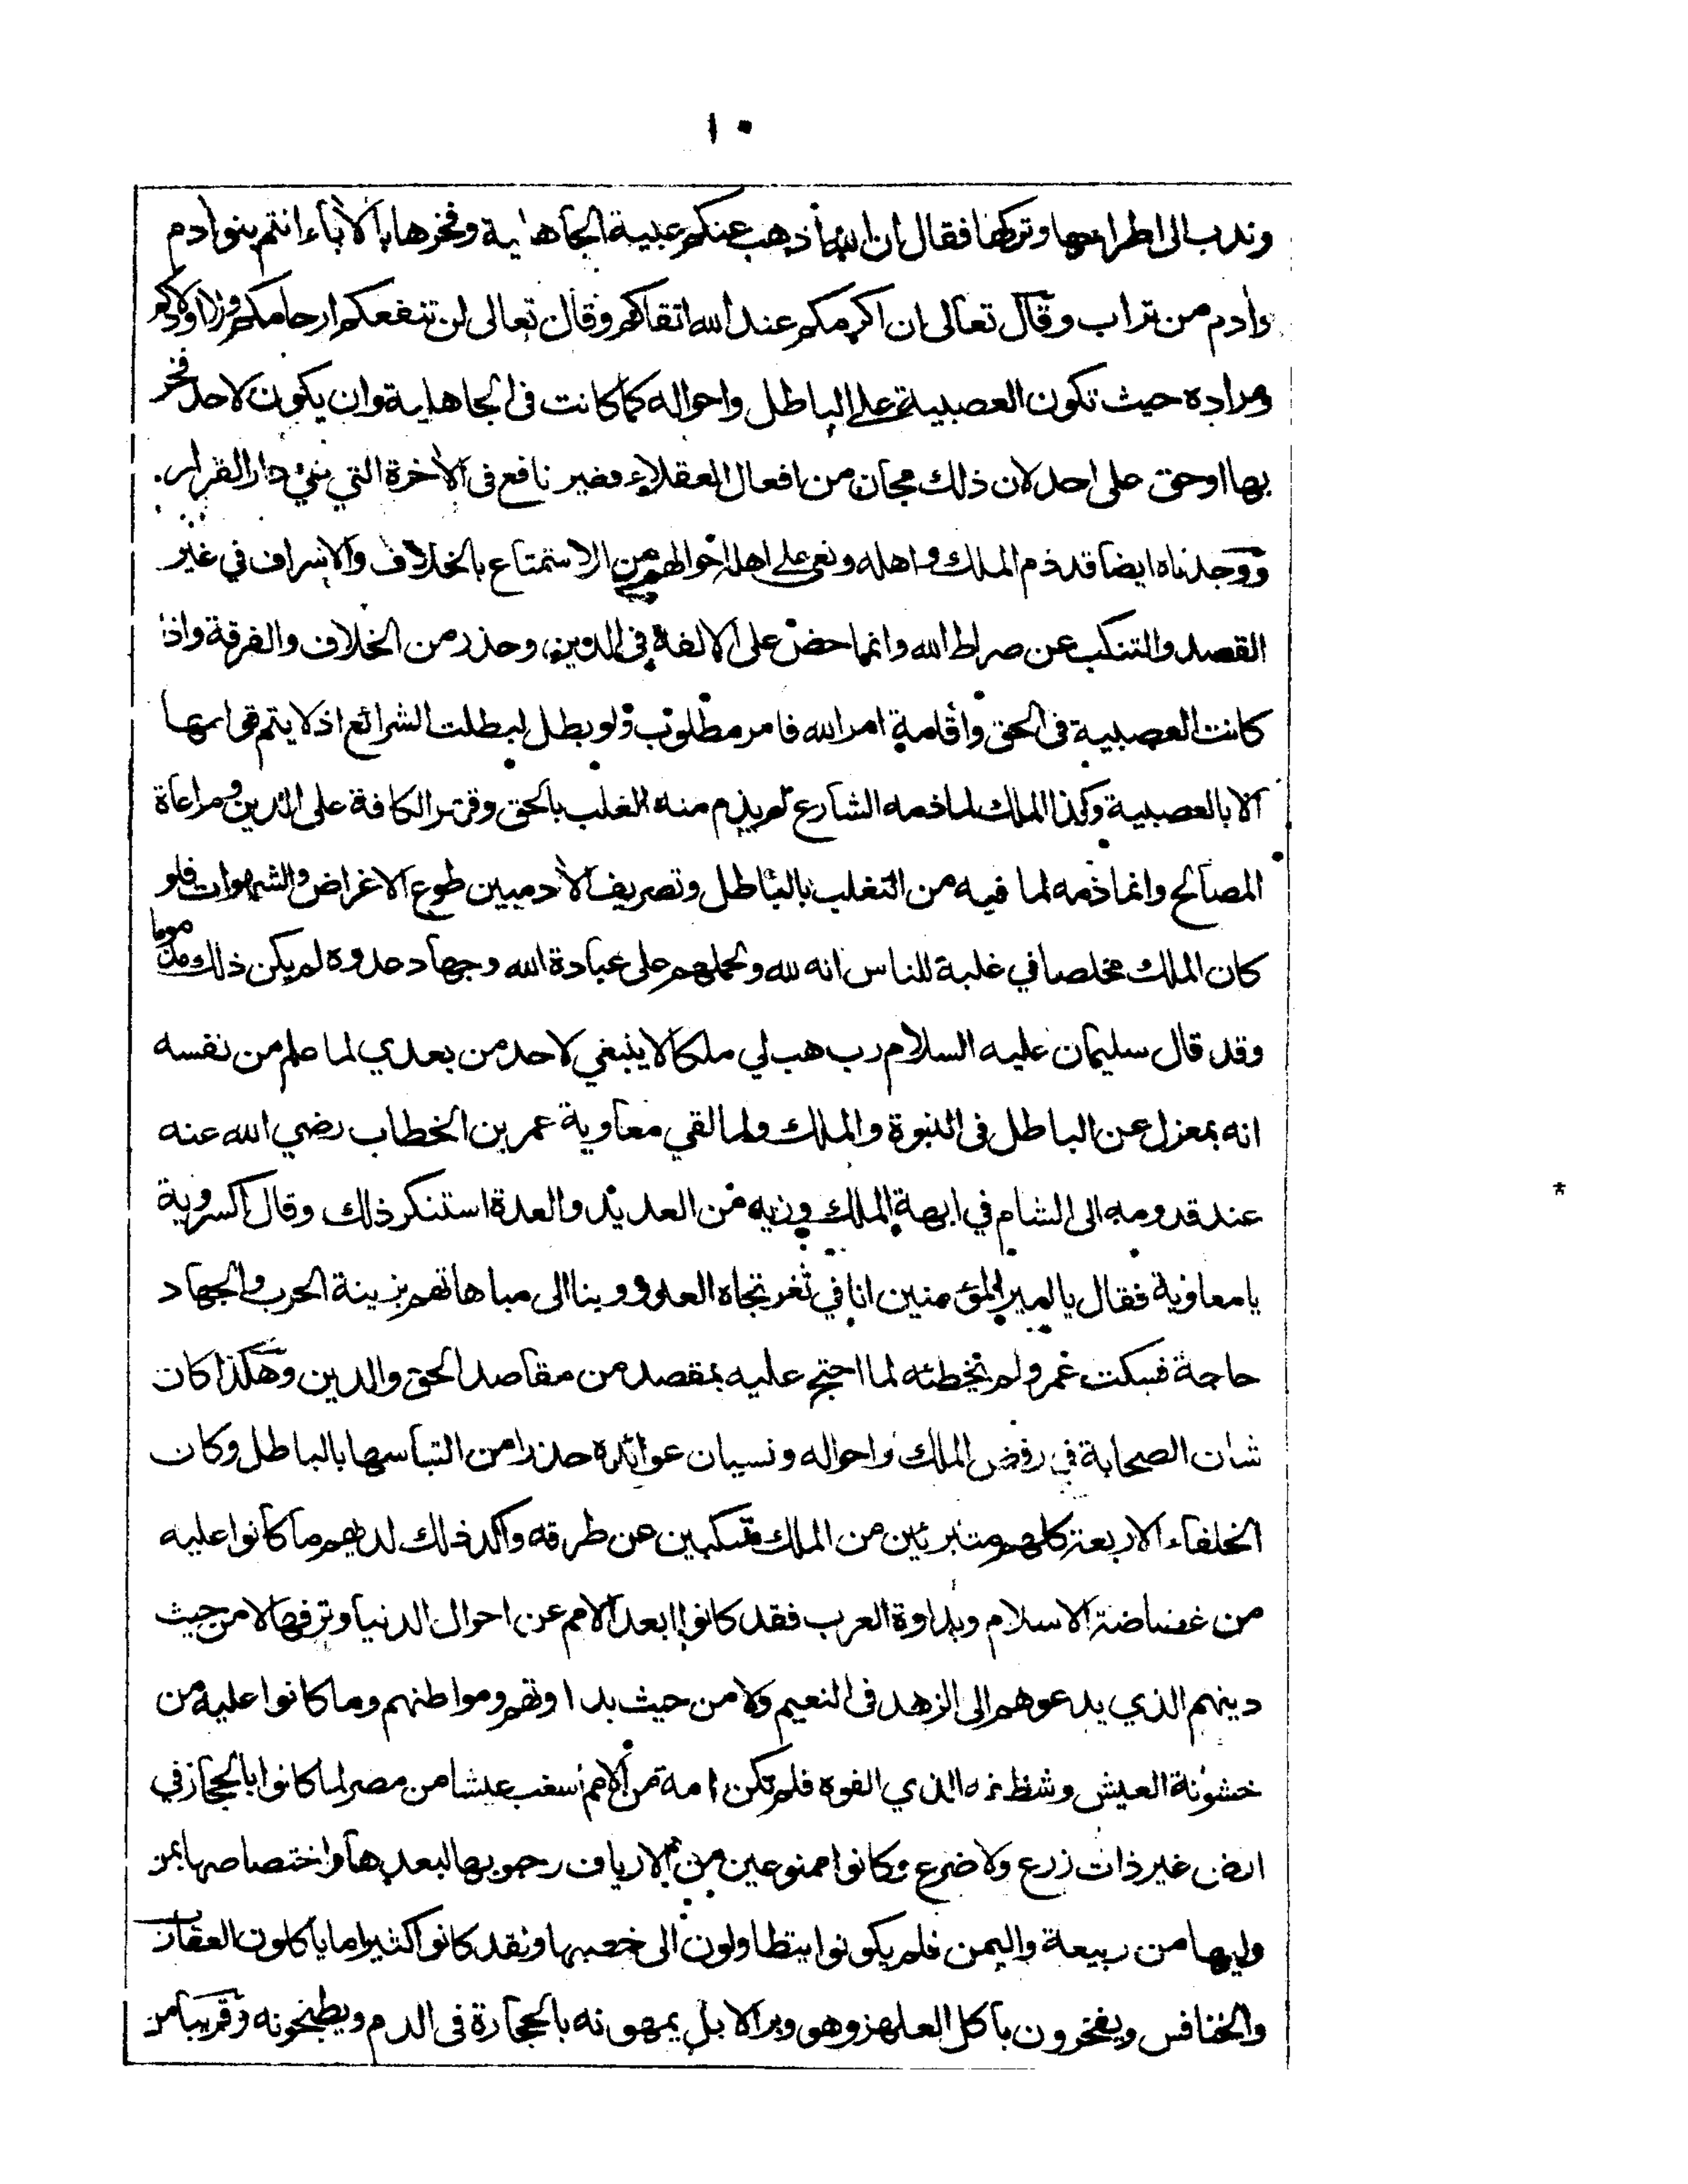 ١٠
وندب الى اطراحها وتركها فقال ان الله اذهب عنكم عبية الجاهلية وفخرها بالآباء انتم بنو ادم
وادم من تراب وقال تعالى ان اكرمكم عند الله اتقاكم وقال تعالى لن تنفعكم ارحامكم ولا اولادكم
ومراده حيث تكون العصبية على الباطل واحواله كما كانت فى الجاهلية وان يكون لاحد فخر
بها او حق على احد لان ذلك مجان من افعال العقلاء وغير نافع فى الآخرة التي هي دار القرار.
ووجدناه ايضا قد ذم الملك واهله ونعى على اهله احوالهم من الاستمتاع بالخلاف والاسراف في غير
القصد والتنكب عن صراط الله وانما حض على الالفة فى الدين وحذر من الخلاف والفرقة واذا
كانت العصبية فى الحق واقامة امر الله فامر مطلوب ولو بطل لبطلت الشرائع اذ لا يتم قوامها
الا بالعصبية وكذا الملك لما ذمه الشارع لم يذم منه الغلب بالحق وقهر الكافة على الدين ومراعاة
المصالح وانما ذمه لما فيه من التغلب بالباطل وتصريف الآدميين طوع الاغراض والشهوات فلو
كان الملك مخلصا في غلبة للناس انه لله ولحملهم على عبادة الله وجهاد عدوه لم يكن ذلك مذموما
وقد قال سليمان عليه السلام رب هب لي ملكا لا ينبغي لاحد من بعدي لما علم من نفسه
انه بمعزل عن الباطل فى النبوة والملك ولما لقي معاوية عمر بن الخطاب رضي الله عنه
عند قدومه الى الشام في ابهة الملك وزيه من العديد والعدة استنكر ذلك وقال اكسروية
يا معاوية فقال يا امير المؤمنين انا في ثغر تجاه العدو وبنا الى مباهاتهم بزينة الحرب والجهاد
حاجة فسكت عمر ولم يخطئه لما احتج عليه بمقصد من مقاصد الحق والدين وهكذا كان
شان الصحابة في رفض الملك واحواله ونسيان عوائده حذرا من التباسها بالباطل وكان
الخلفاء الاربعة كلهم متبرئين من الملك متنكبين عن طرقه واكد ذلك لديهم ما كانوا عليه
من غضاضة الاسلام وبداوة العرب فقد كانوا ابعد الامم عن احوال الدنيا وترفها لا من حيث
دينهم الذي يدعوهم الى الزهد فى النعيم ولا من حيث بداوتهم ومواطنهم وما كانوا عليه من
خشونة العيش وشظفه الذي الفوه فلم تكن امة من الامم اسغب عيشا من مضر لما كانوا بالحجاز في
ارض غير ذات زرع ولا ضرع وكانوا ممنوعين من الارياف وحبوبها لبعدها واختصاصها بمن
وليها من ربيعة واليمن فلم يكونوا يتطاولون الى خصبها ولقد كانوا كثيرا ما ياكلون العقارب
والخنافس ويفخرون باكل العلهز وهو وبر الابل يمهونه بالحجارة فى الدم ويطبخونه وقريبا من
*